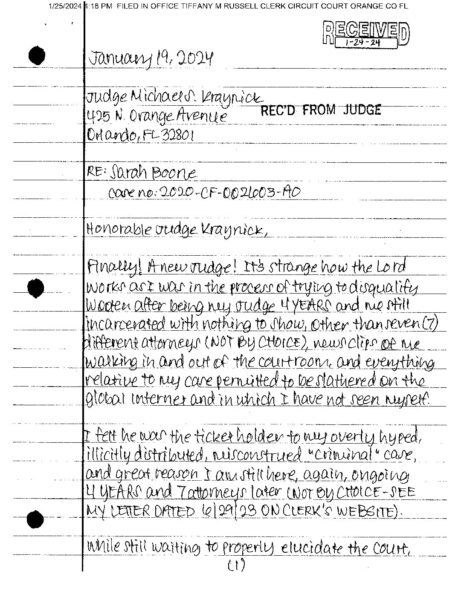 1/25/2024 4:18 PM FILED IN OFFICE TIFFANY M RUSSELL CLERK CIRCUIT COURT ORANGE CO FL
RECEIVED
1-24-24
January 19, 2024
Judge Michael S. Kraynick
425 N. Orange Avenue
REC'D FROM JUDGE
Orlando, FL 32801
RE: Sarah Boone
case no: 2020-CF-002603-AO
Honorable Judge Kraynick,
Finally! A new Judge! It's strange how the Lord
works as I was in the process of trying to disqualify
Wooten after being my Judge 4 YEARS and me still
incarcerated with nothing to show, other than seven (7)
different attorneys (NOT BY CHOICE), news clips of me
walking in and out of the courtroom, and everything
relative to my case permitted to be slathered on the
global internet and in which I have not seen myself.
I felt he was the ticket holder to my overly hyped,
illicitly distributed, misconstrued "criminal" case,
and great reason I am still here, again, ongoing
4 YEARS and 7 attorneys later (NOT BY CHOICE - SEE
MY LETTER DATED 6/29/23 ON CLERK'S WEBSITE).
While still waiting to properly elucidate the court,
(1)